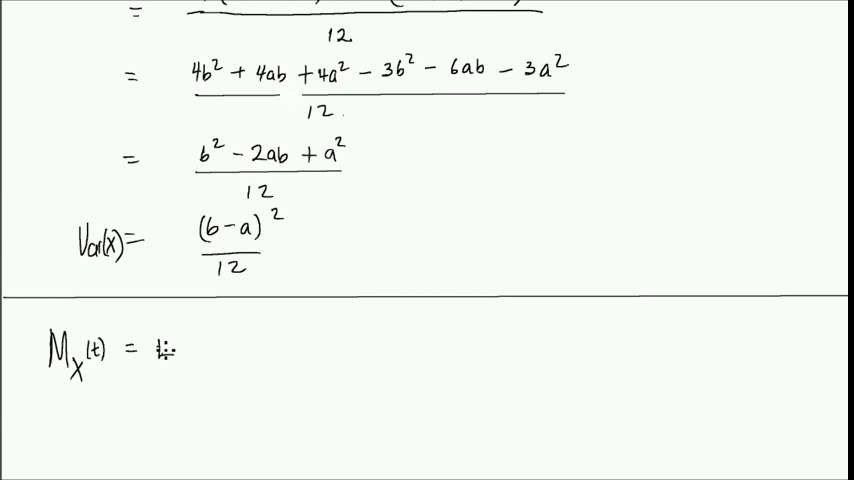 =
12
= 4b² + 4ab + 4a² - 3b² - 6ab - 3a²
12
= b² - 2ab + a²
12
Var(x) = (b-a)²
12
M_X(t) =